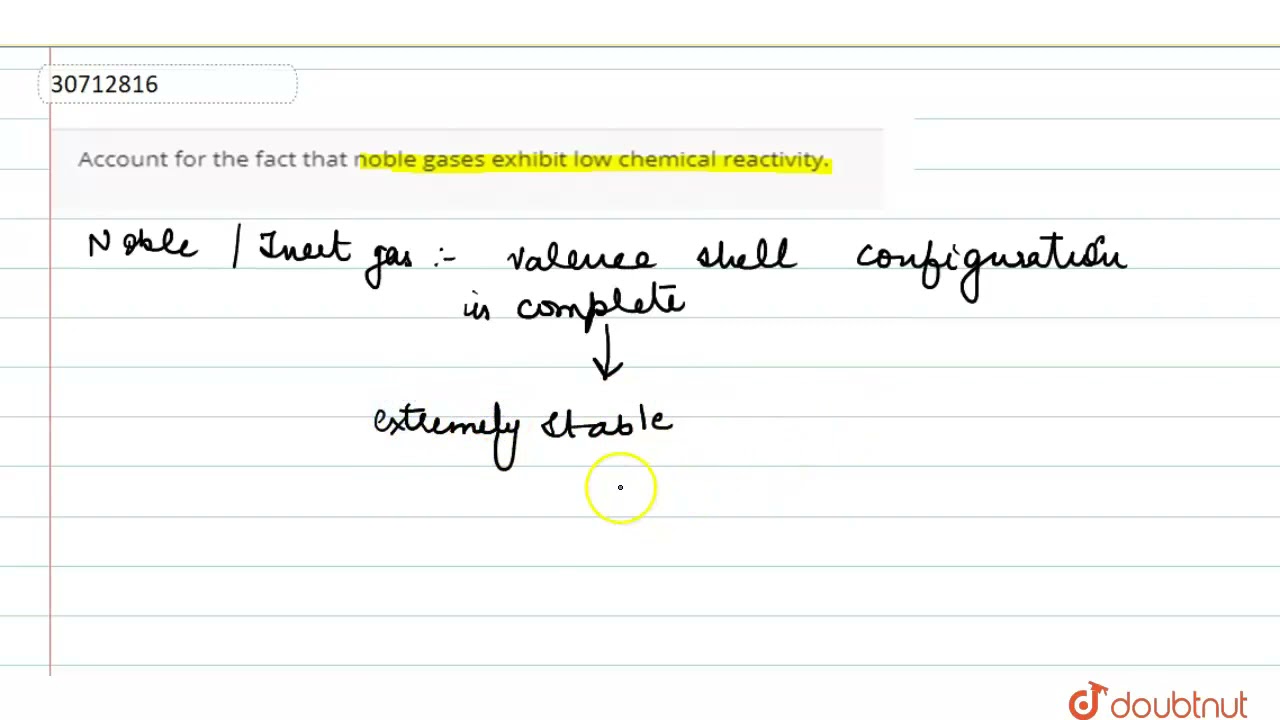 30712816
Account for the fact that noble gases exhibit low chemical reactivity.
Noble / Inert gas :- valence shell configuration
is complete
extremely stable
doubtnut